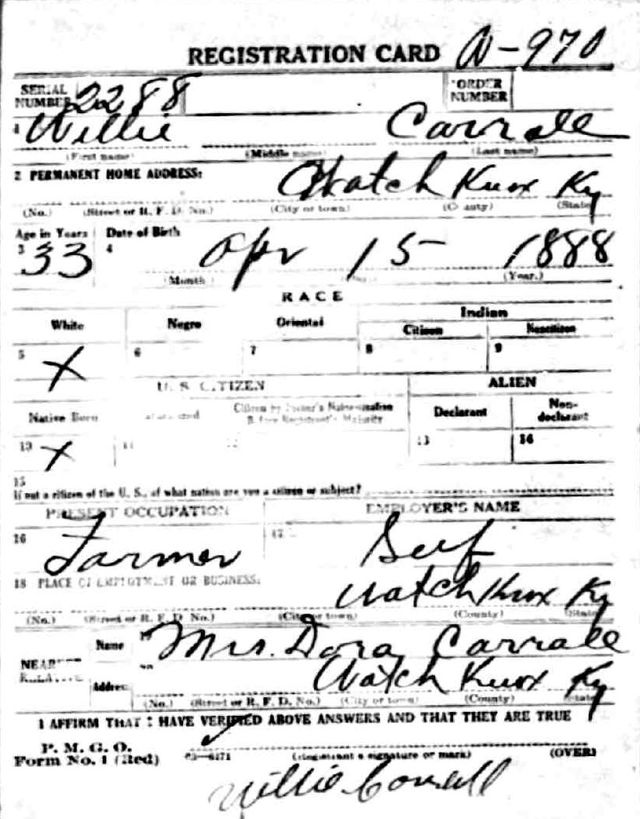 REGISTRATION CARD A-970
SERIAL NUMBER 2288 ORDER NUMBER
1 Willie Carrall
(First name) (Middle name) (Last name)
2 PERMANENT HOME ADDRESS:
Watch Knox Ky
(No.) (Street or R. F. D. No.) (City or town) (County) (State)
Age in Years Date of Birth
3 33 4 Apr 15 1888
(Month) (Year.)
RACE
White Negro Oriental Indian
Citizen Noncitizen
5 X 6 7 8 9
U. S. CITIZEN ALIEN
Native Born Citizen by Father's Naturalization Before Registrant's Majority Declarant Non-declarant
10 X 11 12 13 14
15
If not a citizen of the U. S., of what nation are you a citizen or subject?
PRESENT OCCUPATION EMPLOYER'S NAME
16 Farmer 17 Self
18 PLACE OF EMPLOYMENT OR BUSINESS:
Watch Knox Ky
(No.) (Street or R. F. D. No.) (City or town) (County) (State)
NEAREST RELATIVE
Name 19 Mrs. Dora Carrall
Address 20 Watch Knox Ky
(No.) (Street or R. F. D. No.) (City or town) (County) (State)
I AFFIRM THAT I HAVE VERIFIED ABOVE ANSWERS AND THAT THEY ARE TRUE
P. M. G. O.
Form No. 1 (Red) 03-6171 (Registrant's signature or mark) (OVER)
Willie Carrall